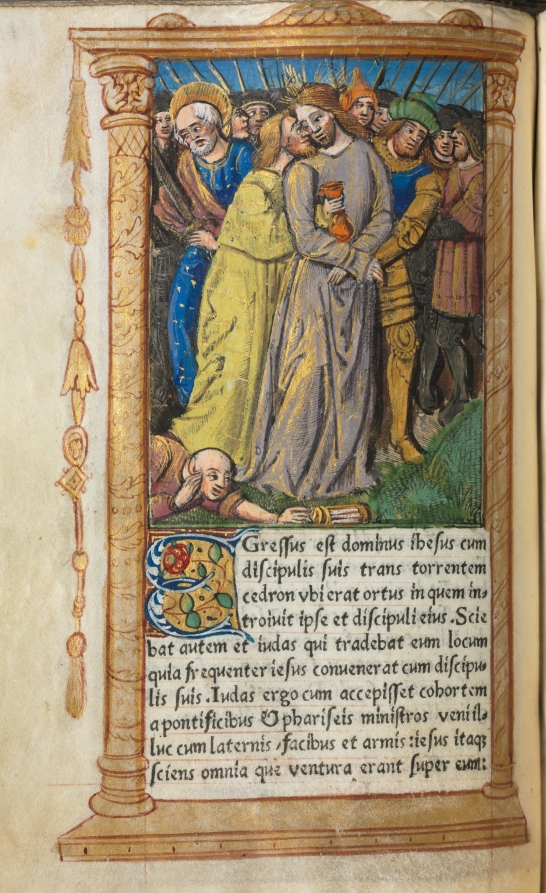 EGressus est dominus ihesus cum
discipulis suis trans torrentem
cedron vbi erat ortus in quem in-
troiuit ipse et discipuli eius . Scie
bat autem et iudas qui tradebat eum locum
quia frequenter iesus conuenerat cum discipu-
lis suis . Iudas ergo cum accepisset cohortem
a pontificibus & phariseis ministros venit il-
luc cum laternis , facibus et armis : iesus itaqȝ
sciens omnia que ventura erant super eum: